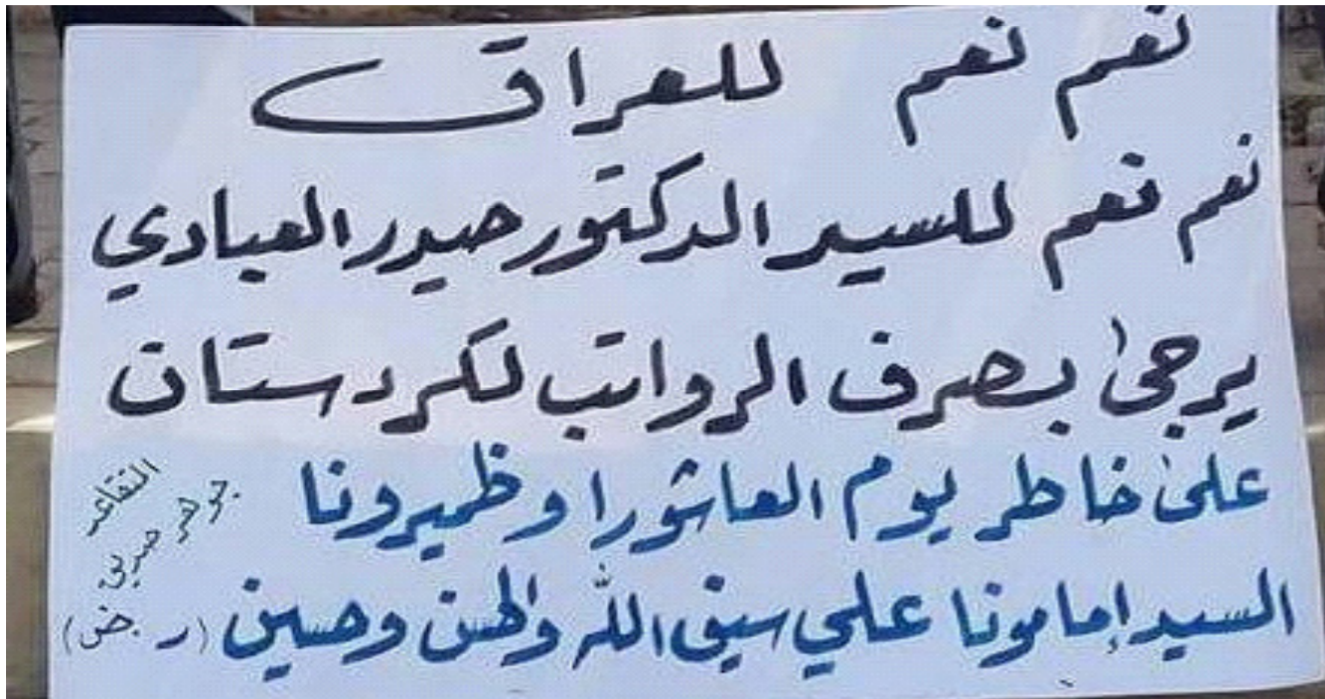 نعم نعم للعراق
نعم نعم للسيد الدكتور حيدر العبادي
يرجىٰ بصرف الرواتب لكردستان
علىٰ خاطر يوم العاشورا وظميرونا
السيد إمامونا علي سيف الله والحسن وحسين (ر.ض)
التقاعد
جوهر صبري